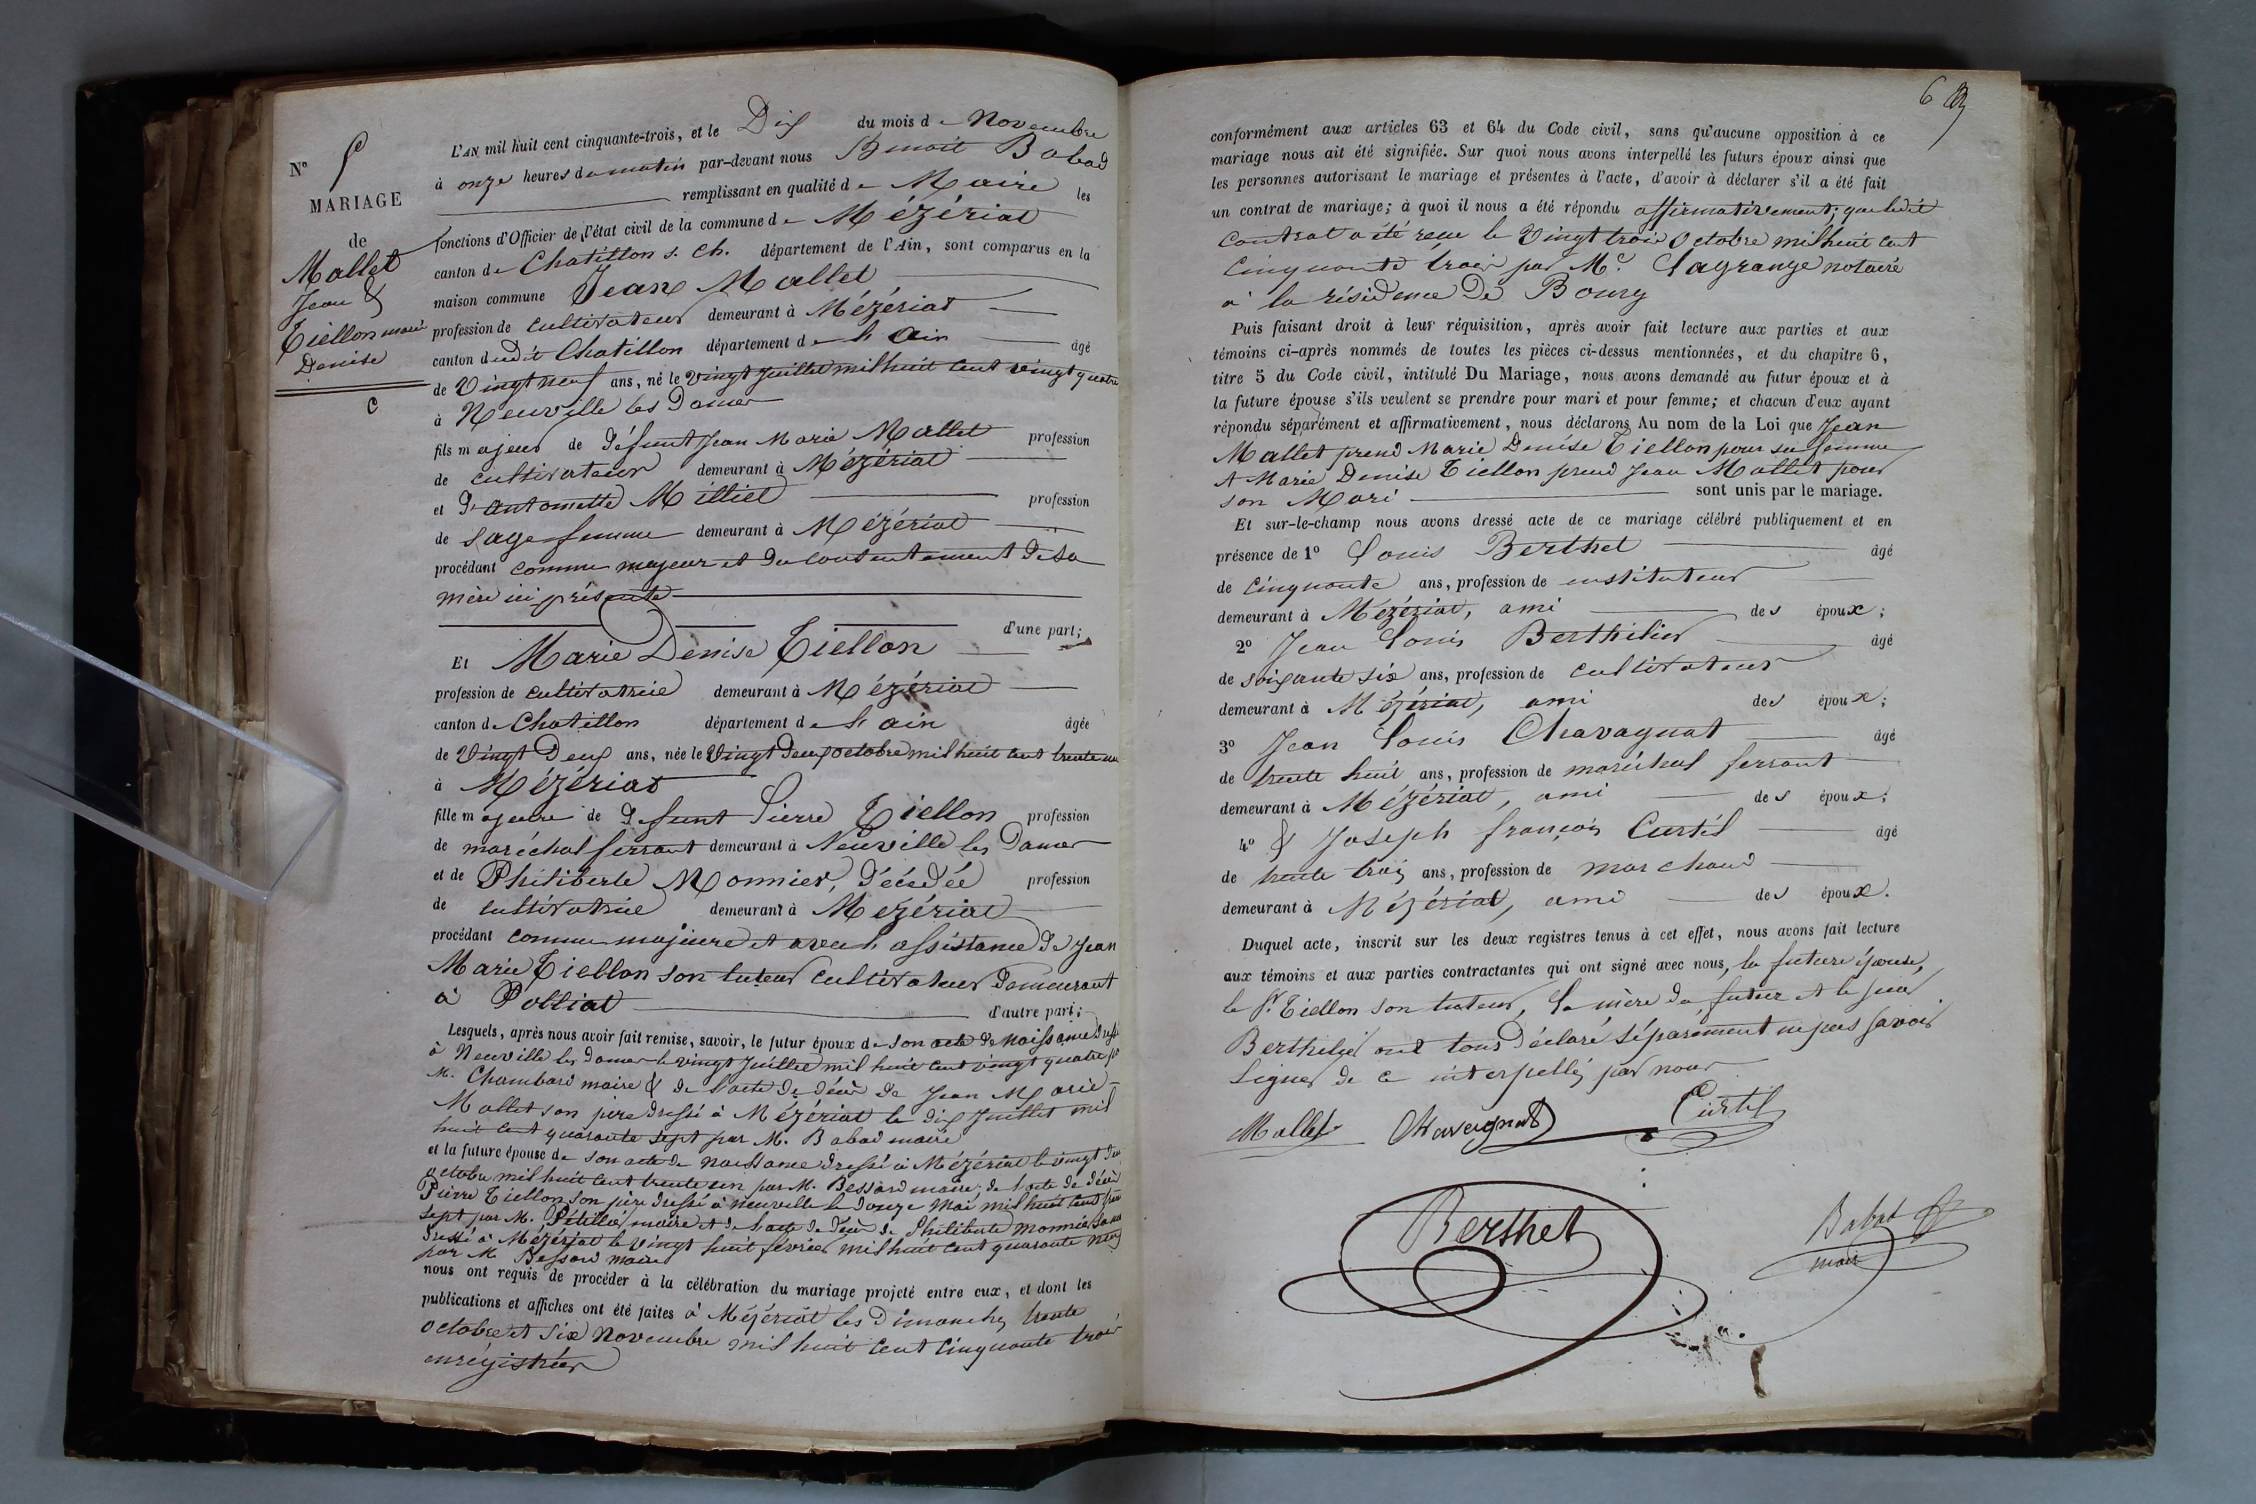 N° 5
MARIAGE
de
Mallet
Jean &
Tiellon marie
Denise
C
L'AN mil huit cent cinquante-trois, et le Dix du mois de Novembre
à onze heures du matin par-devant nous Benoit Babad
remplissant en qualité de Maire les
fonctions d'Officier de l'état civil de la commune de Mézériat
canton de Chatillon s. Ch. département de l'Ain, sont comparus en la
maison commune Jean Mallet
profession de cultivateur demeurant à Mézériat
canton dudit Chatillon département de l'ain âgé
de Vingt neuf ans, né le vingt juillet mil huit cent vingt quatre
à Neuville les Dames
fils majeur de défunt Jean Marie Mallet profession
de cultivateur demeurant à Mézériat
et d'antoinette Milliet profession
de sage femme demeurant à Mézériat
procédant comme majeur et du consentement de sa
mère ici présente
d'une part;
Et Marie Denise Tiellon
profession de cultivatrice demeurant à Mézériat
canton de Chatillon département de l'ain âgée
de Vingt Deux ans, née le Vingt Deux octobre mil huit cent trente un
à Mézériat
fille majeure de défunt Pierre Tiellon profession
de maréchal ferrant demeurant à Neuville les Dames
et de Philiberte Monnier, décédée profession
de cultivatrice demeurant à Mézériat
procédant comme majeure et avec l'assistance de Jean
Marie Tiellon son tuteur cultivateur demeurant
à Polliat
d'autre part;
Lesquels, après nous avoir fait remise, savoir, le futur époux de son acte de naissance dressé
à Neuville les dames le vingt juillet mil huit cent vingt quatre par
M. Chambard maire & de l'acte de décès de Jean Marie
Mallet son père dressé à Mézériat le dix juillet mil
huit cent quarante sept par M. Babad maire
et la future épouse de son acte de naissance dressé à Mézériat le vingt deux
octobre mil huit cent trente un par M. Bessard maire, de l'acte de décès
Pierre Tiellon son père dressé à neuville le douze Mai mil huit cent trente
sept par M. maire et de l'acte de décès de Philiberte monnier sa mère
dressé à Mézériat le vingt huit février mil huit cent quarante neuf
par M Bessard maire
nous ont requis de procéder à la célébration du mariage projeté entre eux, et dont les
publications et affiches ont été faites à Mézériat les Dimanches trente
octobre et six novembre mil huit cent cinquante trois
enregistrées
6
conformément aux articles 63 et 64 du Code civil, sans qu'aucune opposition à ce
mariage nous ait été signifiée. Sur quoi nous avons interpellé les futurs époux ainsi que
les personnes autorisant le mariage et présentes à l'acte, d'avoir à déclarer s'il a été fait
un contrat de mariage; à quoi il nous a été répondu affirmativement; que ledit
contrat a été reçu le Vingt trois Octobre mil huit cent
cinquante trois par Me. Lagrange notaire
à la résidence de Bourg
Puis faisant droit à leur réquisition, après avoir fait lecture aux parties et aux
témoins ci-après nommés de toutes les pièces ci-dessus mentionnées, et du chapitre 6,
titre 5 du Code civil, intitulé Du Mariage, nous avons demandé au futur époux et à
la future épouse s'ils veulent se prendre pour mari et pour femme; et chacun d'eux ayant
répondu séparément et affirmativement, nous déclarons Au nom de la Loi que Jean
Mallet prend Marie Denise Tiellon pour sa femme
et Marie Denise Tiellon prend Jean Mallet pour
son Mari sont unis par le mariage.
Et sur-le-champ nous avons dressé acte de ce mariage célébré publiquement et en
présence de 1° Louis Berthet âgé
de cinquante ans, profession de instituteur
demeurant à Mézériat, ami des époux;
2° Jean Louis Berthilier âgé
de soixante six ans, profession de cultivateur
demeurant à Mézériat, ami des époux;
3° Jean Louis Chavagnat âgé
de trente huit ans, profession de maréchal ferrant
demeurant à Mézériat, ami des époux;
4° & Joseph françois Curtil âgé
de trente trois ans, profession de marchand
demeurant à Mézériat, ami des époux.
Duquel acte, inscrit sur les deux registres tenus à cet effet, nous avons fait lecture
aux témoins et aux parties contractantes qui ont signé avec nous, la future épouse,
le Sr Tiellon son tuteur, la mère du futur et le sieur
Berthilier ont tous déclaré séparément ne pas savoir
signer de ce interpellés par nous
Mallet Chavagnat Curtil
Berthet
Babad
maire